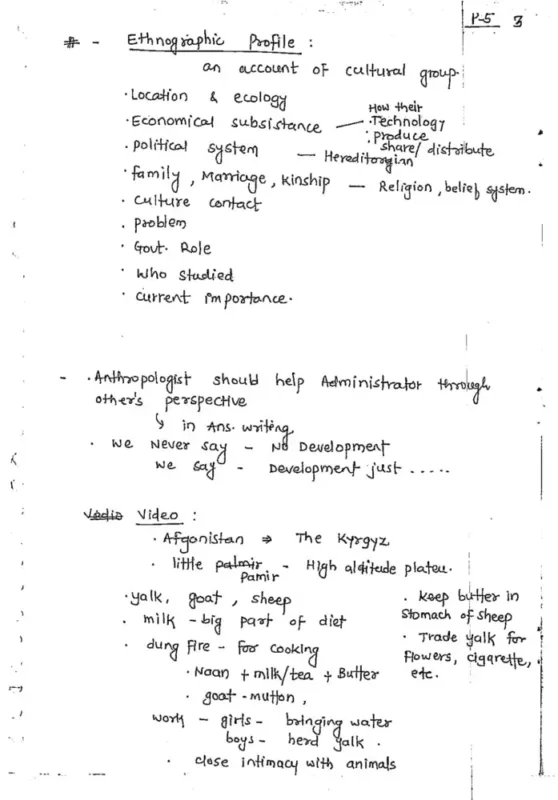 P-5 3
# - Ethnographic Profile :
an account of cultural group.
· Location & ecology
· Economical subsistance — How their
· Technology
· produce
share/ distribute
· political system — Hereditorgian
· family , Marriage , kinship — Religion , belief system.
· culture contact
· problem
· Govt. Role
· Who studied
· current importance.
- · Anthropologist should help Administrator through
other's perspective
↳ in Ans. writing
· We Never say - No Development
We say - Development just .....
Video :
· Afgonistan ⇒ The Kyrgyz
· little pamir - High altitude plateu.
· yalk, goat , sheep
· milk - big part of diet
· dung fire - for cooking
· Naan + milk/tea + Butter
· goat - mutton ,
work - girls - bringing water
boys - herd yalk .
· close intimacy with animals
· keep butter in
stomach of sheep
· Trade yalk for
flowers, cigarette,
etc.